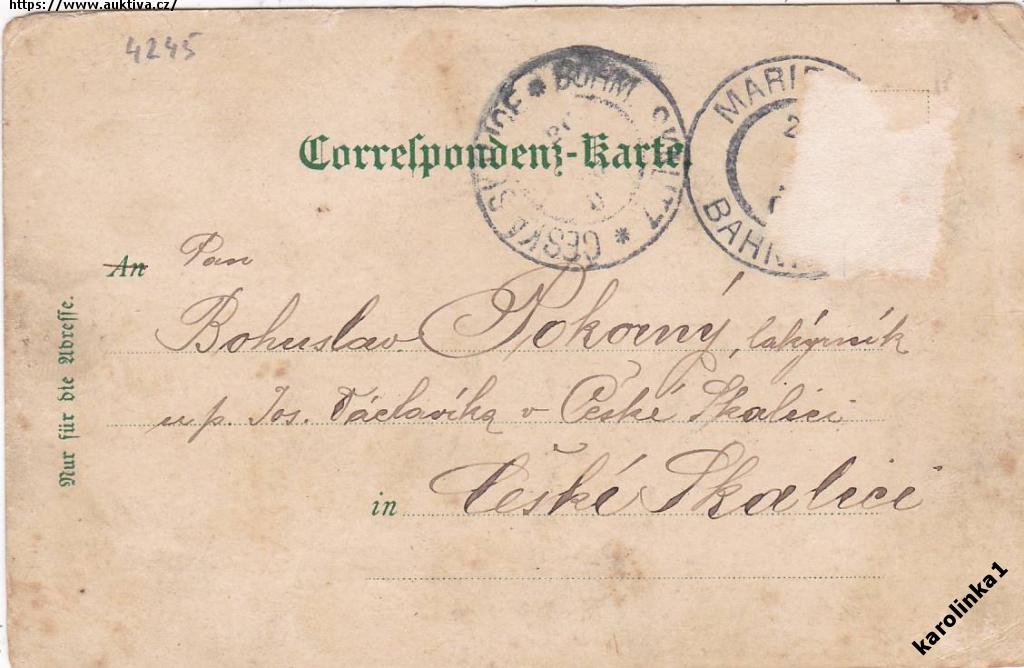 https://www.auktiva.cz/
4245
BÖHM. SKALITZ * ČESKÁ SKALICE *
MARIE
2
BAHN
Correspondenz-Karte.
An Pan
Bohuslav Pokorný, lakýrník
u p. Jos. Václavíka v České Skalici
in České Skalici
Nur für die Adresse.
karolinka1